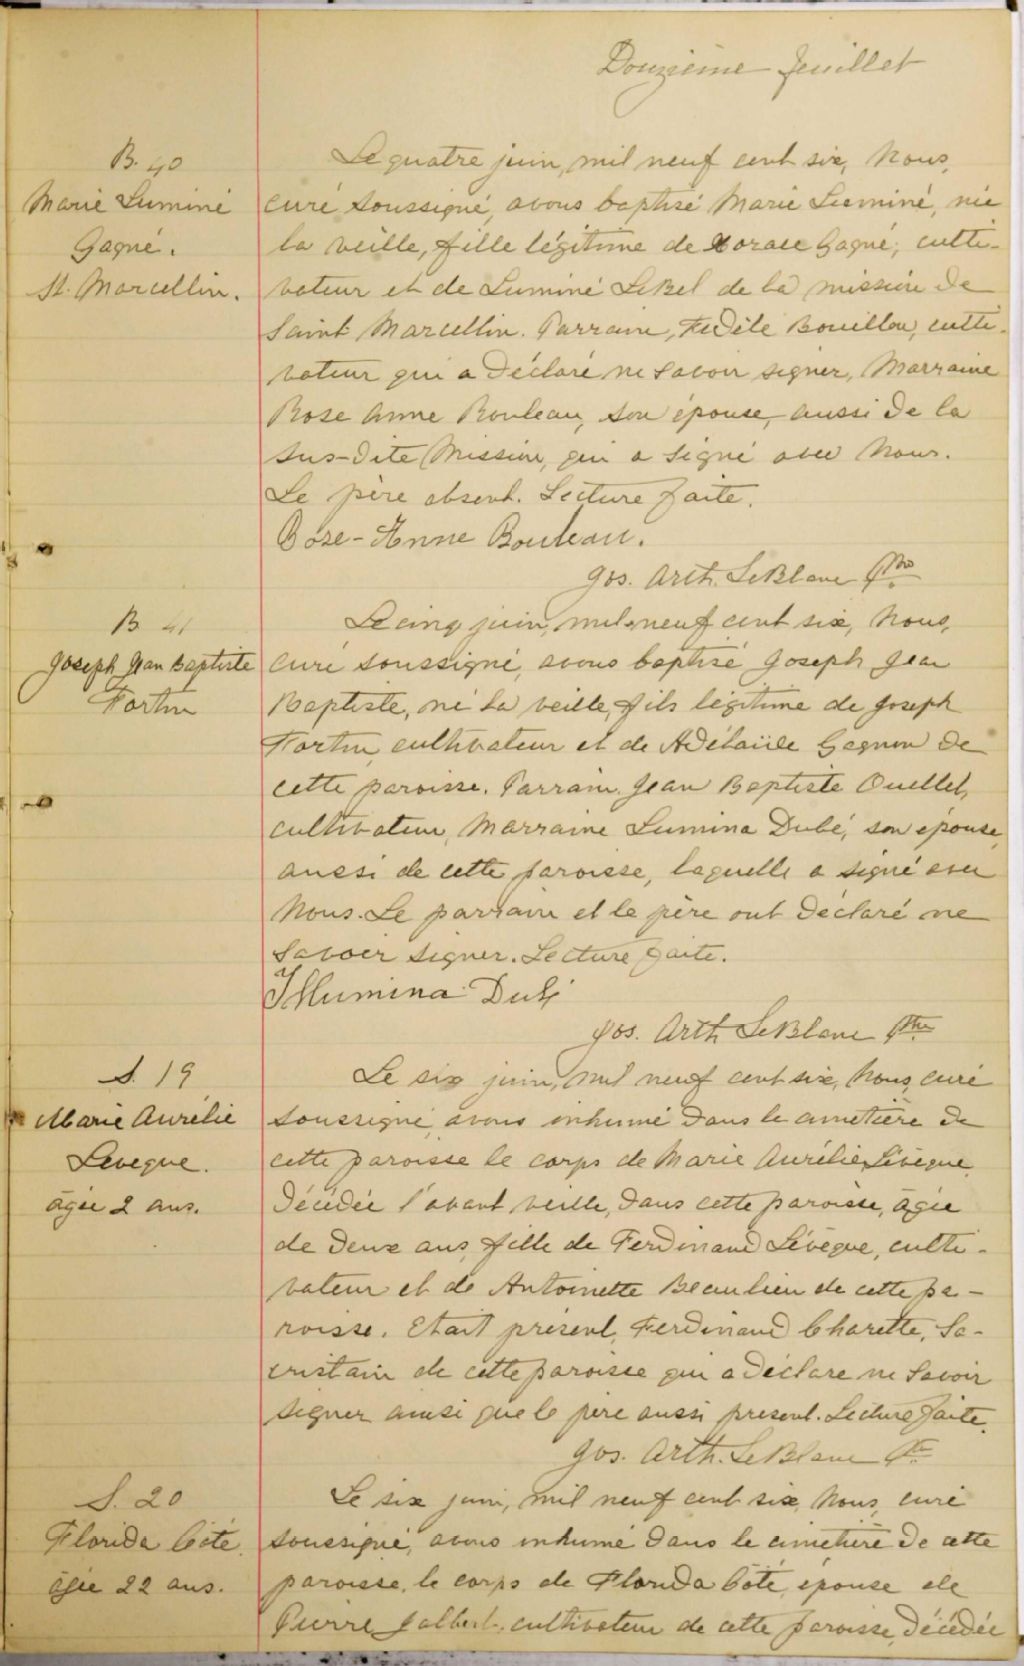 Douzième feuillet
B. 40
Marie Luminé
Gagné.
St. Marcellin.
Le quatre juin, mil neuf cent six, Nous,
curé soussigné, avons baptisé Marie Luminé, née
la veille, fille légitime de Horace Gagné, culti-
vateur et de Luminé LeBel de la mission de
Saint Marcellin. Parrain, Fedèle Bouillon, culti-
vateur qui a déclaré ne savoir signer, Marraine
Rose Anne Rouleau, son épouse, aussi de la
sus-dite Mission, qui a signé avec Nous.
Le père absent. Lecture faite.
Rose-Anne Rouleau.
Jos. Arth. LeBlanc Ptre
B 41
Joseph Jean Baptiste
Fortin
Le cinq juin, mil neuf cent six, Nous,
curé soussigné, avons baptisé Joseph Jean
Baptiste, né la veille, fils légitime de Joseph
Fortin, cultivateur et de Adélaïde Gagnon de
cette paroisse. Parrain, Jean Baptiste Ouellet,
cultivateur, Marraine Lumina Dubé, son épouse,
aussi de cette paroisse, laquelle a signé avec
Nous. Le parrain et le père ont déclaré ne
savoir signer. Lecture faite.
Illumina Dubé
Jos. Arth LeBlanc Ptre
S. 19
Marie Aurélie
Leveque.
âgée 2 ans.
Le six juin, mil neuf cent six, Nous, curé
soussigné, avons inhumé dans le cimetière de
cette paroisse le corps de Marie Aurélie Lévèque,
décédée l'avant veille, dans cette paroisse, âgée
de deux ans, fille de Ferdinand Lévèque, culti-
vateur et de Antoinette Beaulieu de cette pa-
roisse. Etait présent, Ferdinand Charette, Sa-
cristain de cette paroisse qui a déclare ne savoir
signer ainsi que le père aussi present. Lecture faite.
Jos. Arth. LeBlanc Ptre
S. 20
Florida Côté.
âgée 22 ans.
Le six juin, mil neuf cent six, Nous, curé
soussigné, avons inhumé dans le cimetière de cette
paroisse, le corps de Florida Côté, épouse de
Pierre Jalbert, cultivateur de cette paroisse, décédée